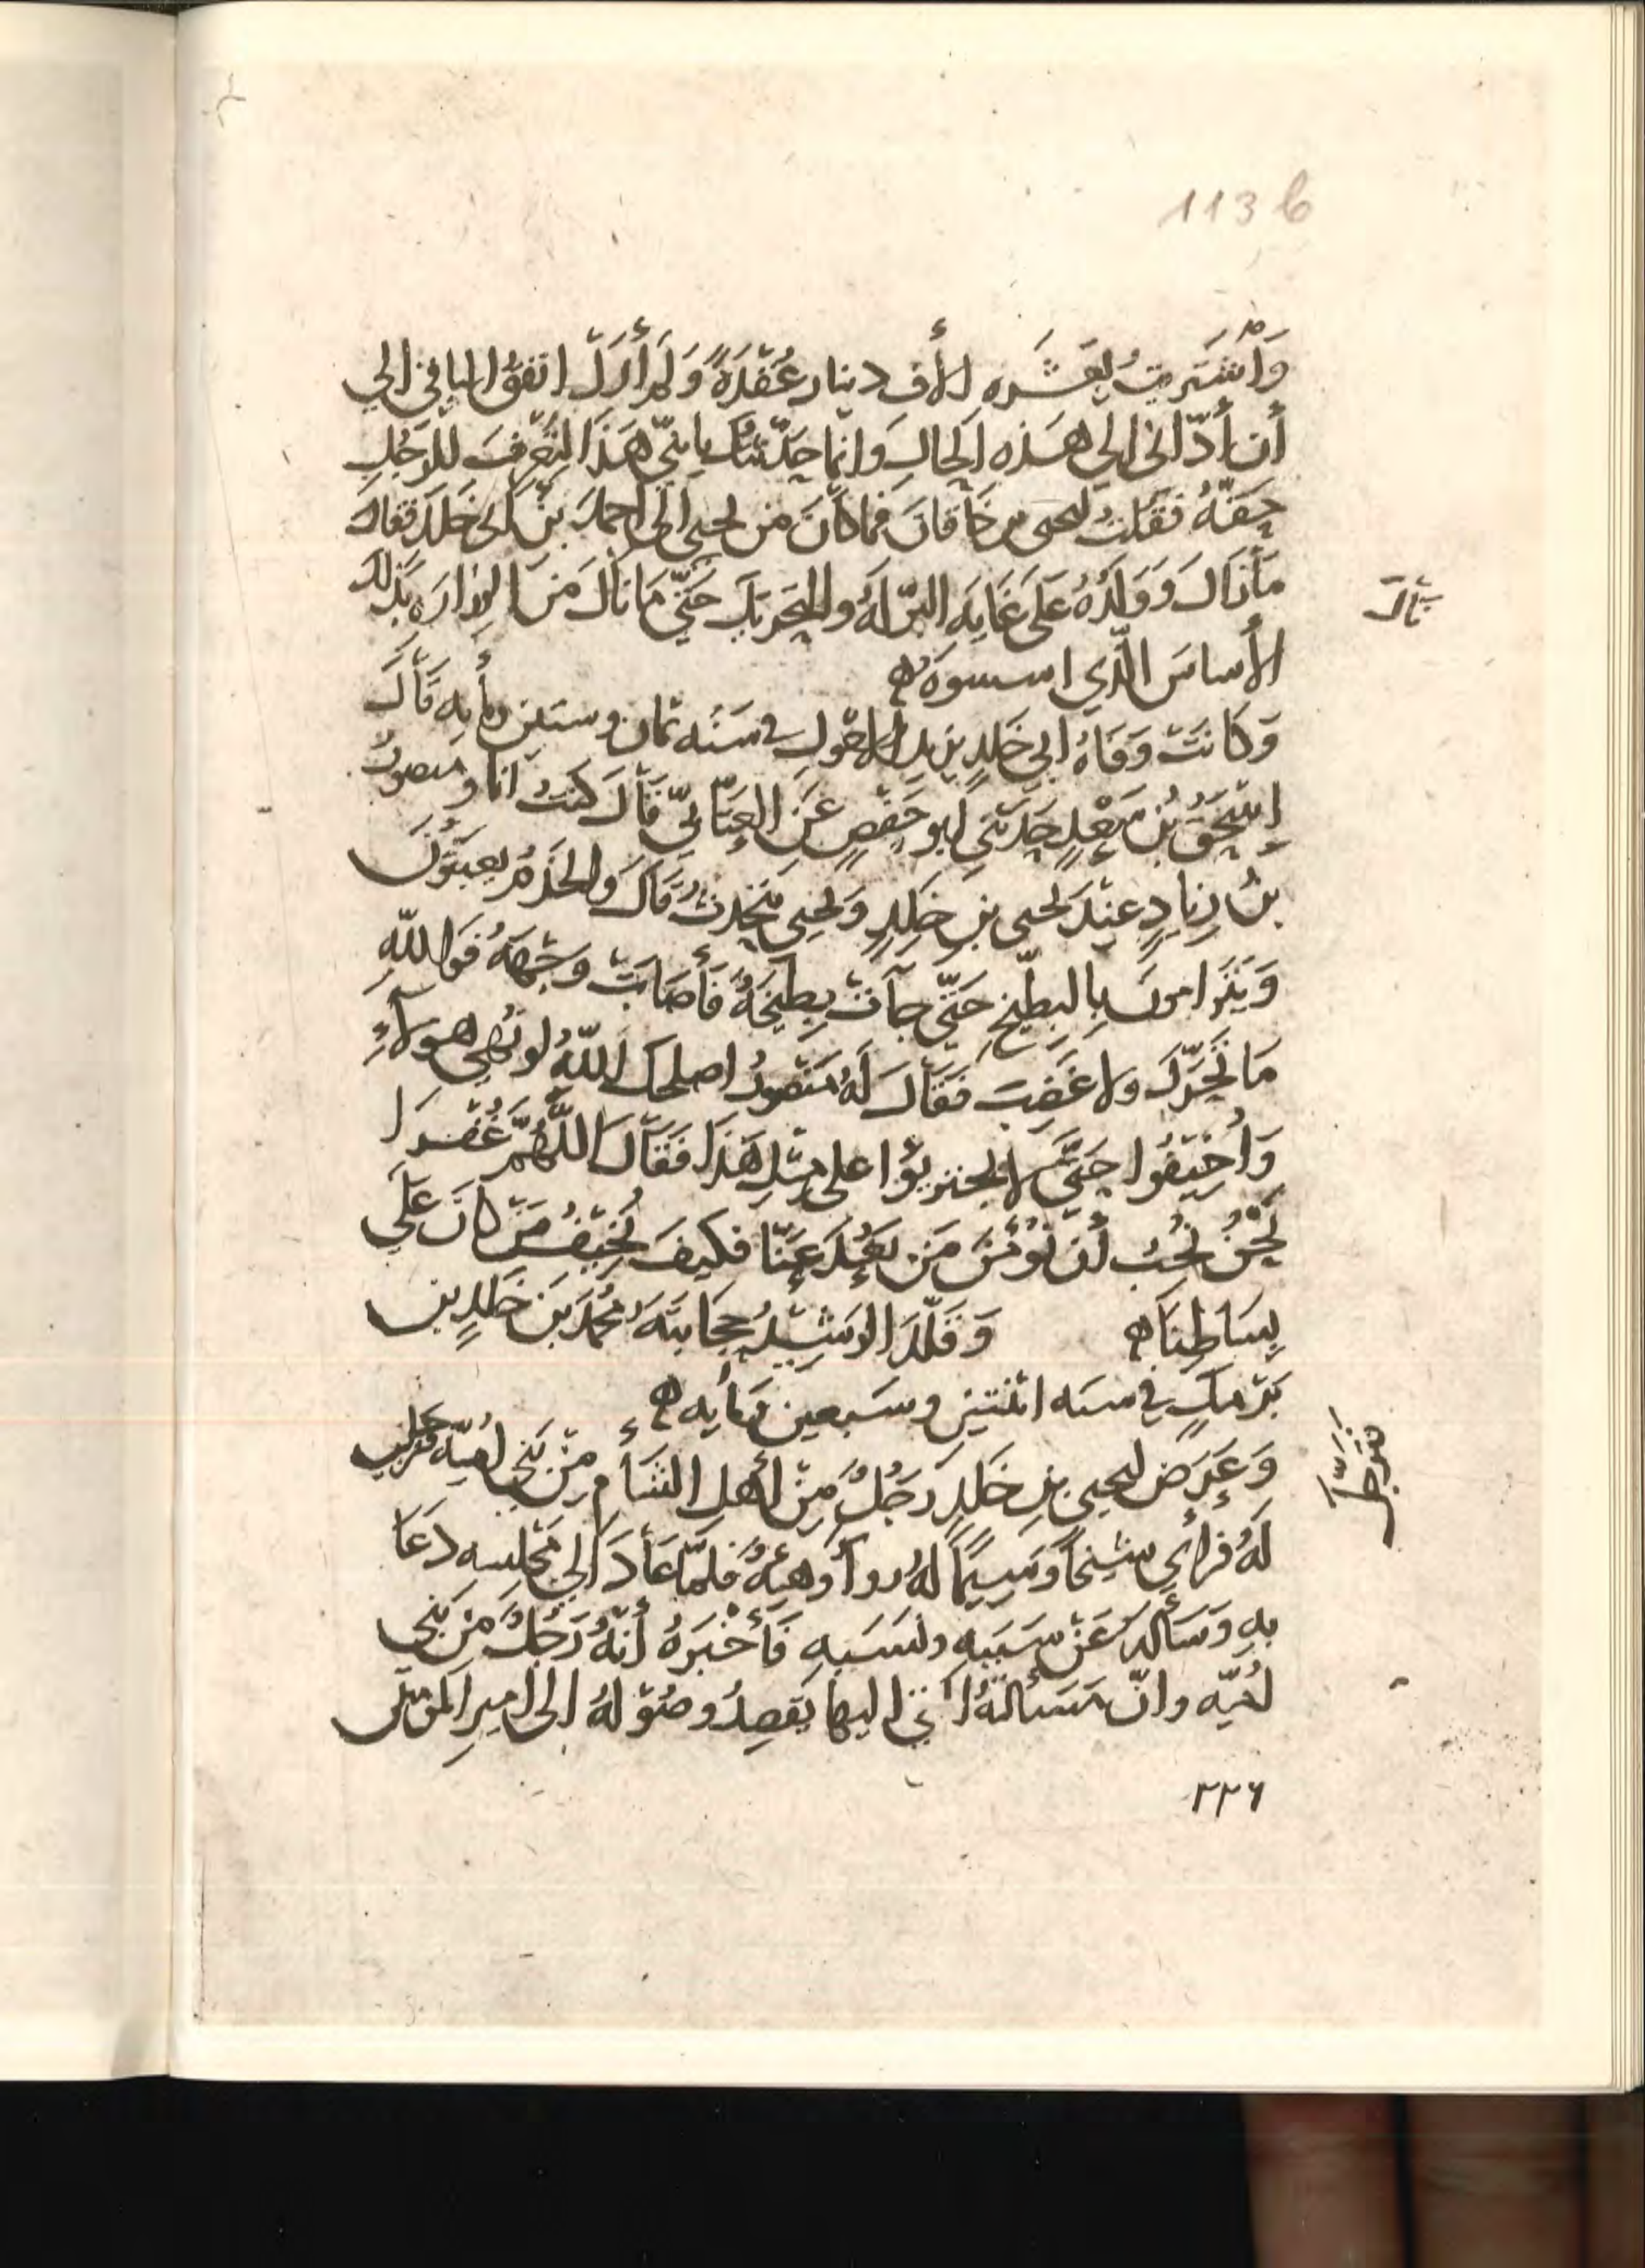 113 b
وَاشْتَريتُ بعَشَره الأف دينار عُقْدَةً وَلم أَزَلْ انفقُ الباقي الي
أن أدّاني الي هَذه الحال وَانّما حَدّثتُك يا بنيّ هَذا لِتَعْرفَ للرّجُلِ
حَقّهُ فقُلتُ ليحيى بن خاقان فما كانَ من يحيى الى احمدَ بنِ أبي خَلد فقال
مَا زال وَوَلَدُهُ عَلَى غايه البرّ لهُ والتحريك حَتّي مَا نالَ مَن الوزاره بذلك
نال
الأساسَ الّذي اسسوهُ
وَكانتْ وَفاهُ ابي خَلدٍ يزيد الاحْول في سَنه ثمان وستين ومأيه قَالَ
إسْحَقُ بْن سَعْدٍ حَدّثني ابو حَفْصٍ عَنِ العتّابيّ قَالَ كنتُ انا ومنصورُ
بنُ زيادٍ عندَ يحيى بن خلدٍ ويحيى يتحدثُ قال والخدمُ يعبثُونَ
وَيَترامونَ بالبطّيخ حَتّي جآتْ بطّيخةٌ فأصابتْ وجهَهُ فوَاللّهِ
مَا تحرّك ولا غضبَ فقالَ لَهُ منصورُ اصلحك اللّهُ لو نُهي هولآءِ
وَاُخيفُوا حَتّي لا يجتريُوا على مِثلِ هَذا فَقَالَ اللّهُمّ غُفْرَا
نَحْنُ نُحبُ أن نُؤْمنَ مَن بَعُدَ عنّا فكيفَ نُخيفُ مَنْ كانَ عَلَي
بِسَاطِنَا وَقَلّدَ الرشيْدُ حِجَابتَهُ مُحمدَ بن خَلدٍ بن
بَرْمكٍ في سنه اثنتين وسَبعين ومأيه
وَعَرَضَ ليحيى بنِ خَلدٍ رَجُلٌ مِنْ أهلِ الشأم مِنْ بَني اُميّه
لَهُ فرأي شيخاً وَسيماً لهُ روآ وَهيئهٌ فلمّا عَادَ الي مجلسه دَعَا
بهِ وَسَألهُ عَنْ سَببهِ ونسَبهِ فَأخْبَرهُ أنّهُ رَجُلٌ مَن بَني
اُميّه وانّ مَسَألتهُ التي اليها يَقصدُ وصُوْلهُ الى امير المؤمنين
٢٢٦